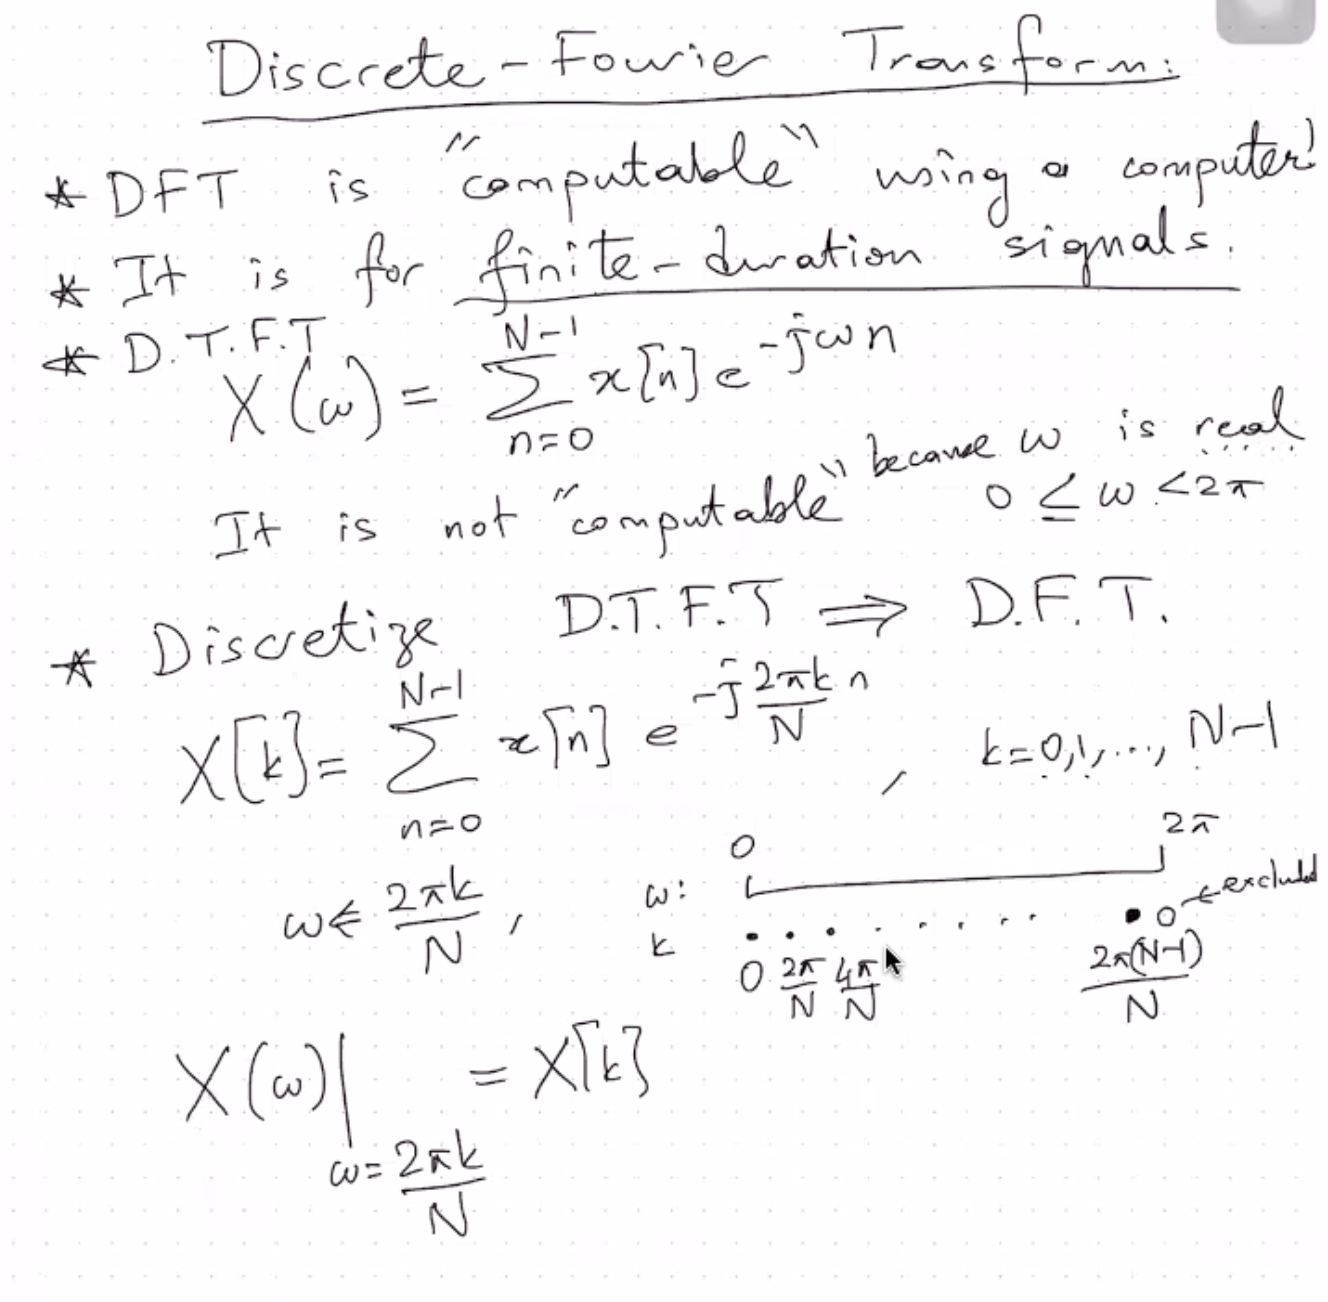 Discrete-Fourier Transform:
* DFT is "computable" using a computer!
* It is for finite-duration signals.
* D.T.F.T
X(ω) = ∑_{n=0}^{N-1} x[n] e^{-jωn}
It is not "computable" because ω is real
0 ≤ ω < 2π
* Discretize D.T.F.T ⇒ D.F.T.
X[k] = ∑_{n=0}^{N-1} x[n] e^{-j\frac{2πk}{N}n} , k=0,1,..., N-1
ω ← \frac{2πk}{N} ,
ω: 0 2π
k 0 \frac{2π}{N} \frac{4π}{N} \frac{2π(N-1)}{N} ← excluded
X(ω)|_{ω=\frac{2πk}{N}} = X[k]